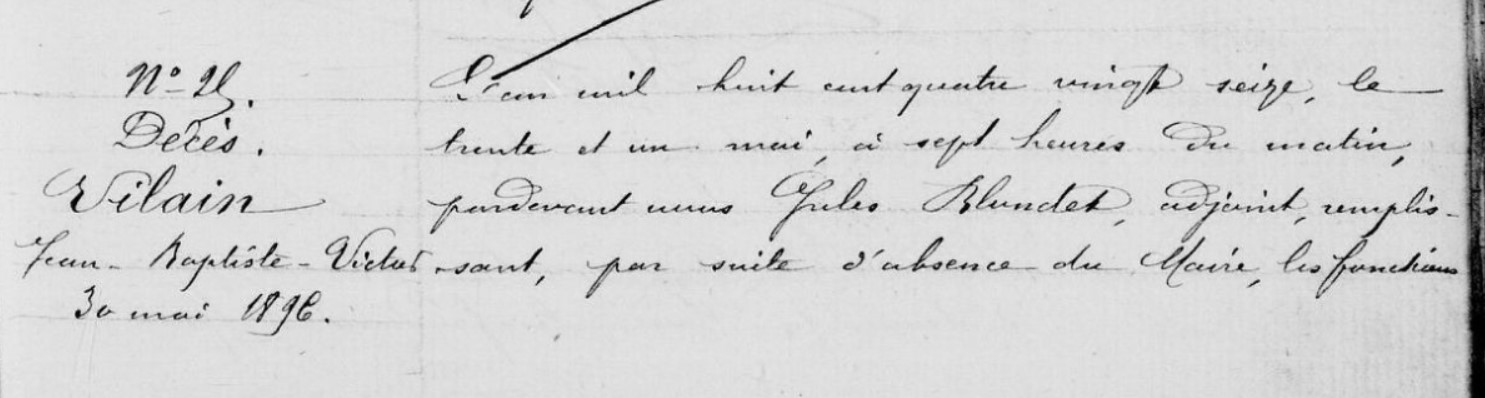 N° 25.
Décès.
Vilain
Jean-Baptiste-Victor
30 mai 1896.
L'an mil huit cent quatre vingt seize, le
trente et un mai, à sept heures du matin,
pardevant nous Jules Blundet, adjoint, remplis-
sant, par suite d'absence du Maire, les fonctions